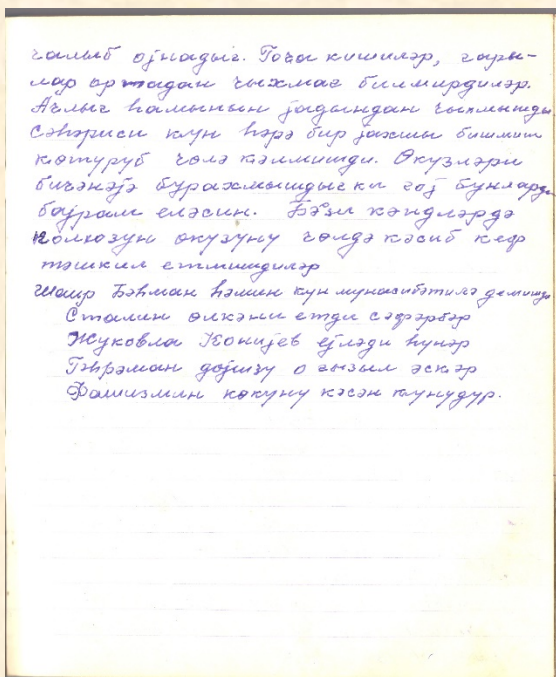 чалыб ојнадыг. Гоча кишиләр, гары-
лар ортадан чыхмаг билмирдиләр.
Аҹлыг һамынын јадындан чыхмышды.
Сәһәриси күн һәрә бир јахшы бишмиш
көтүрүб чөлә кәлмишди. Өкүзләри
бичәнәјә бурахмышдыг ки гој бунларда
бајрам еләсин. Бәзи кәндләрдә
колхозун өкүзүнү чөлдә кәсиб кеф
тәшкил етмишдиләр
Шаир Бәһман һәмин күн мунасибәтилә демишди
Сталин өлкәни етди сәфәрбәр
Жуковла Конијев ејләди һүнәр
Гәһрәман дөјүшү о гызыл әскәр
Фашизмин көкүнү кәсән күнүдүр.